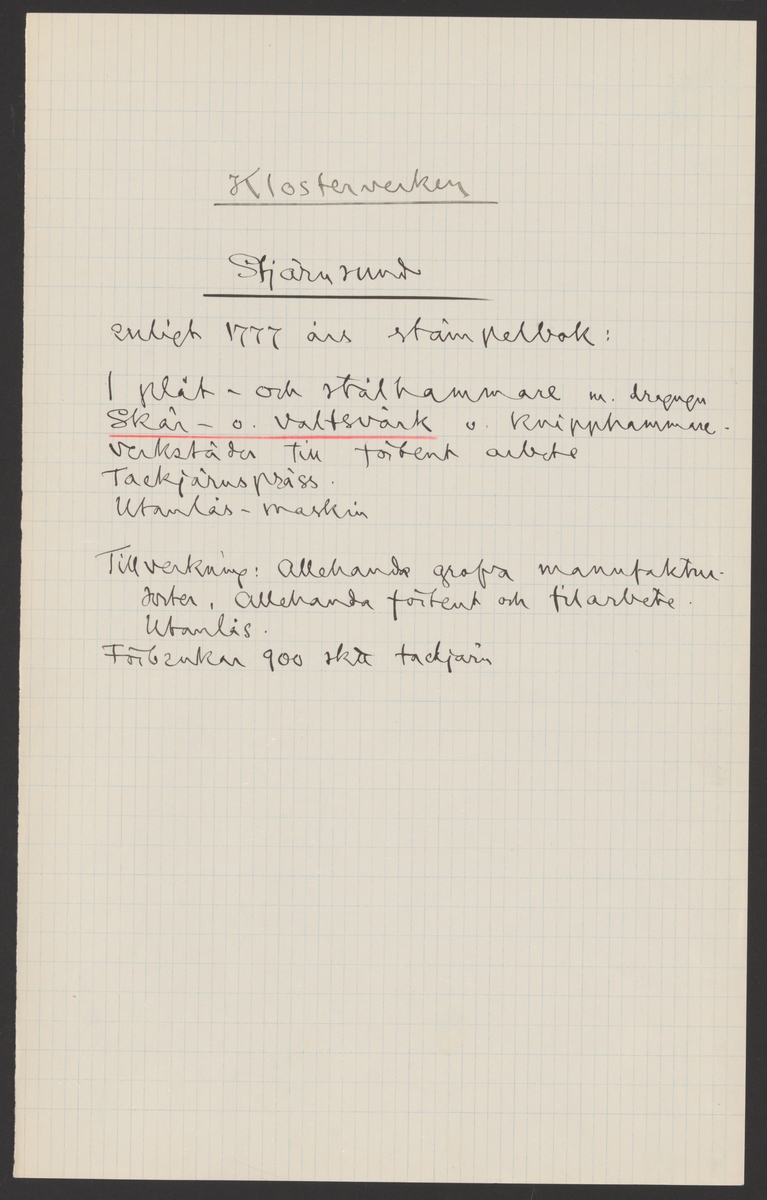 Klosterverken
Stjärnsund
enligt 1777 års stämpelbok:
1 plåt- och stålhammare m. dragugn
Skär- o. valtsvärk o. knipphammare.
Verkstäder till förtent arbete
Tackjärnspräss.
Utanlås-maskin
Tillverkning: Allehanda grofva manufaktur-
sorter, Allehanda förtent och filarbete.
Utanlås.
Förbrukar 900 sktt tackjärn